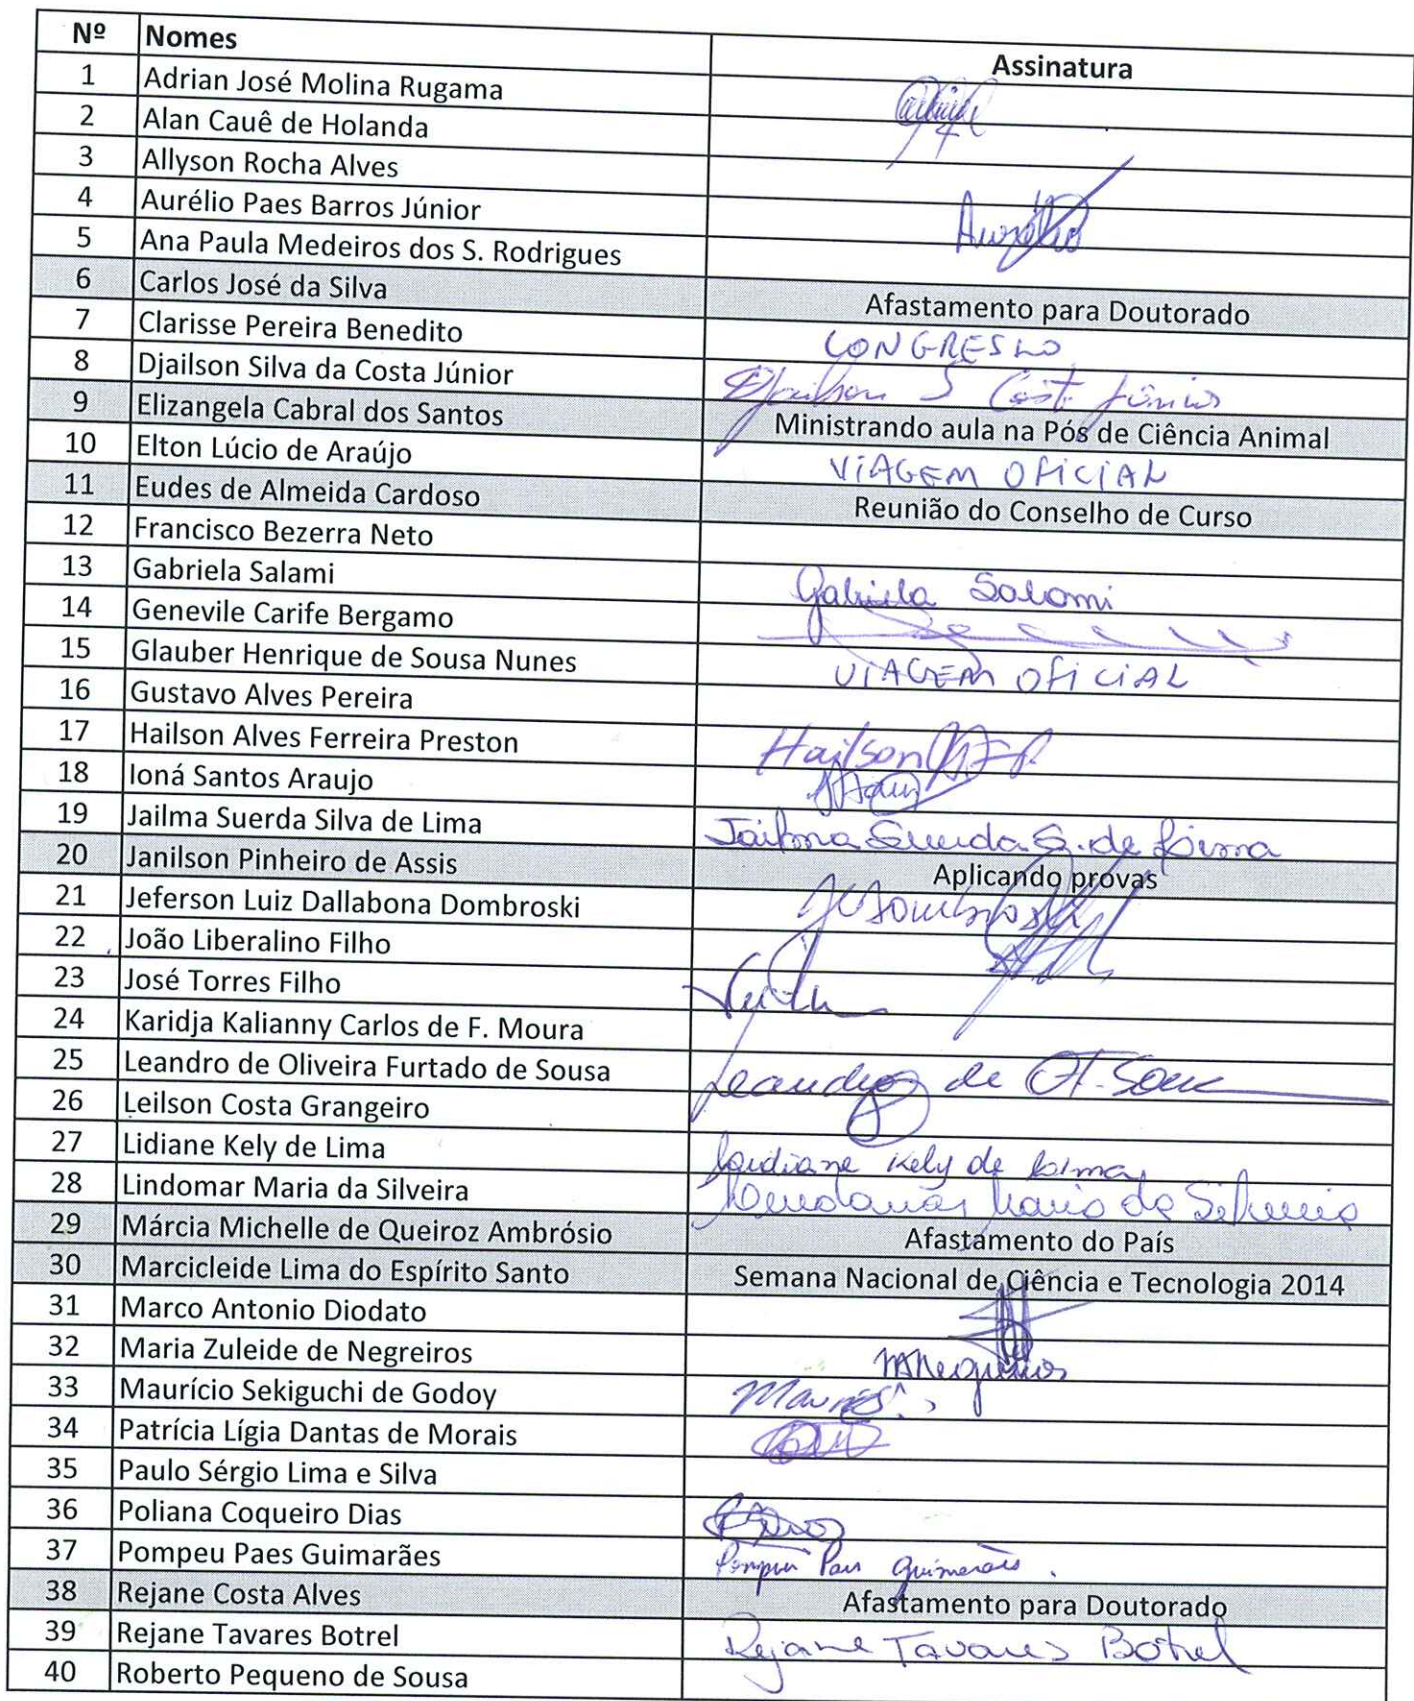 Nº Nomes Assinatura
1 Adrian José Molina Rugama
2 Alan Cauê de Holanda
3 Allyson Rocha Alves
4 Aurélio Paes Barros Júnior Aurélio
5 Ana Paula Medeiros dos S. Rodrigues
6 Carlos José da Silva Afastamento para Doutorado
7 Clarisse Pereira Benedito CONGRESSO
8 Djailson Silva da Costa Júnior Djailson S Costa Júnior
9 Elizangela Cabral dos Santos Ministrando aula na Pós de Ciência Animal
10 Elton Lúcio de Araújo VIAGEM OFICIAL
11 Eudes de Almeida Cardoso Reunião do Conselho de Curso
12 Francisco Bezerra Neto
13 Gabriela Salami Gabriela Salami
14 Genevile Carife Bergamo
15 Glauber Henrique de Sousa Nunes VIAGEM OFICIAL
16 Gustavo Alves Pereira
17 Hailson Alves Ferreira Preston Hailson AFP
18 Ioná Santos Araujo
19 Jailma Suerda Silva de Lima Jailma Suerda S. de Lima
20 Janilson Pinheiro de Assis Aplicando provas
21 Jeferson Luiz Dallabona Dombroski
22 João Liberalino Filho
23 José Torres Filho
24 Karidja Kalianny Carlos de F. Moura
25 Leandro de Oliveira Furtado de Sousa Leandro de O F. Sousa
26 Leilson Costa Grangeiro
27 Lidiane Kely de Lima Lidiane Kely de Lima
28 Lindomar Maria da Silveira Lindomar Maria da Silveira
29 Márcia Michelle de Queiroz Ambrósio Afastamento do País
30 Marcicleide Lima do Espírito Santo Semana Nacional de Ciência e Tecnologia 2014
31 Marco Antonio Diodato
32 Maria Zuleide de Negreiros MNegreiros
33 Maurício Sekiguchi de Godoy
34 Patrícia Lígia Dantas de Morais
35 Paulo Sérgio Lima e Silva
36 Poliana Coqueiro Dias
37 Pompeu Paes Guimarães Pompeu Paes Guimarães.
38 Rejane Costa Alves Afastamento para Doutorado
39 Rejane Tavares Botrel Rejane Tavares Botrel
40 Roberto Pequeno de Sousa